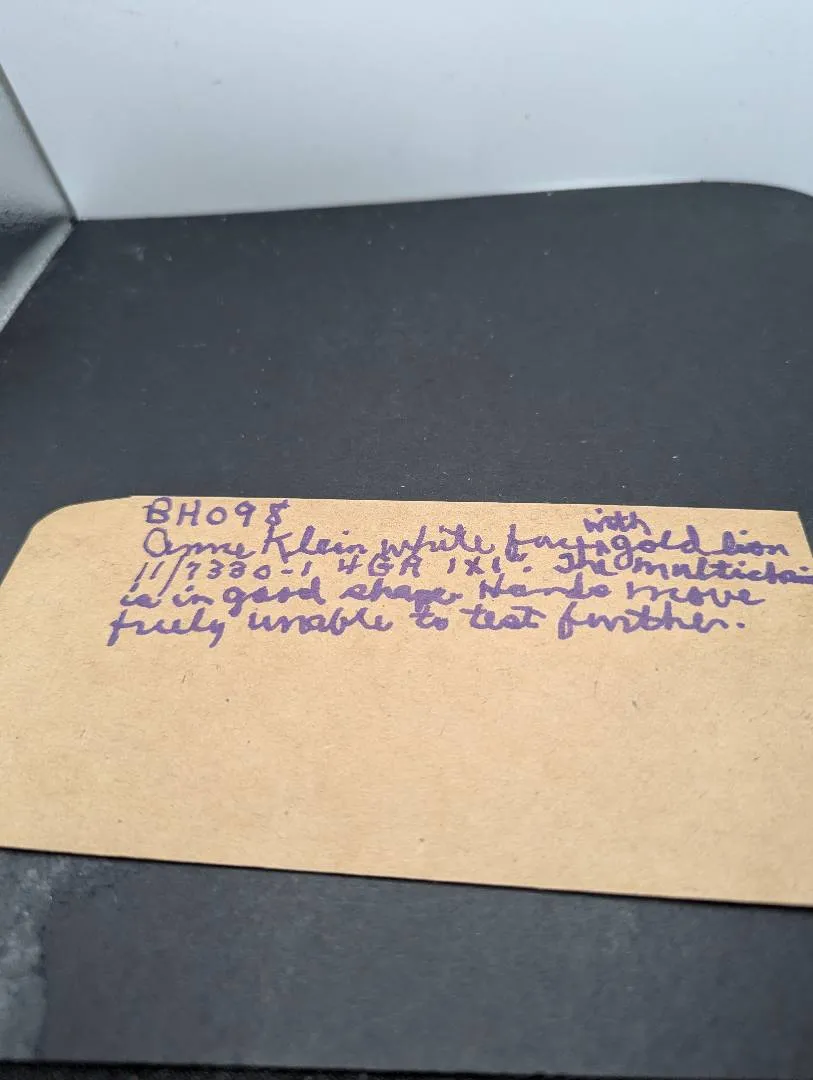 BH098
with
Anne Klein white face gold lion
11/7330-1 4GA 1X1". The multichain
is in good shape. Hands move
freely unable to test further.